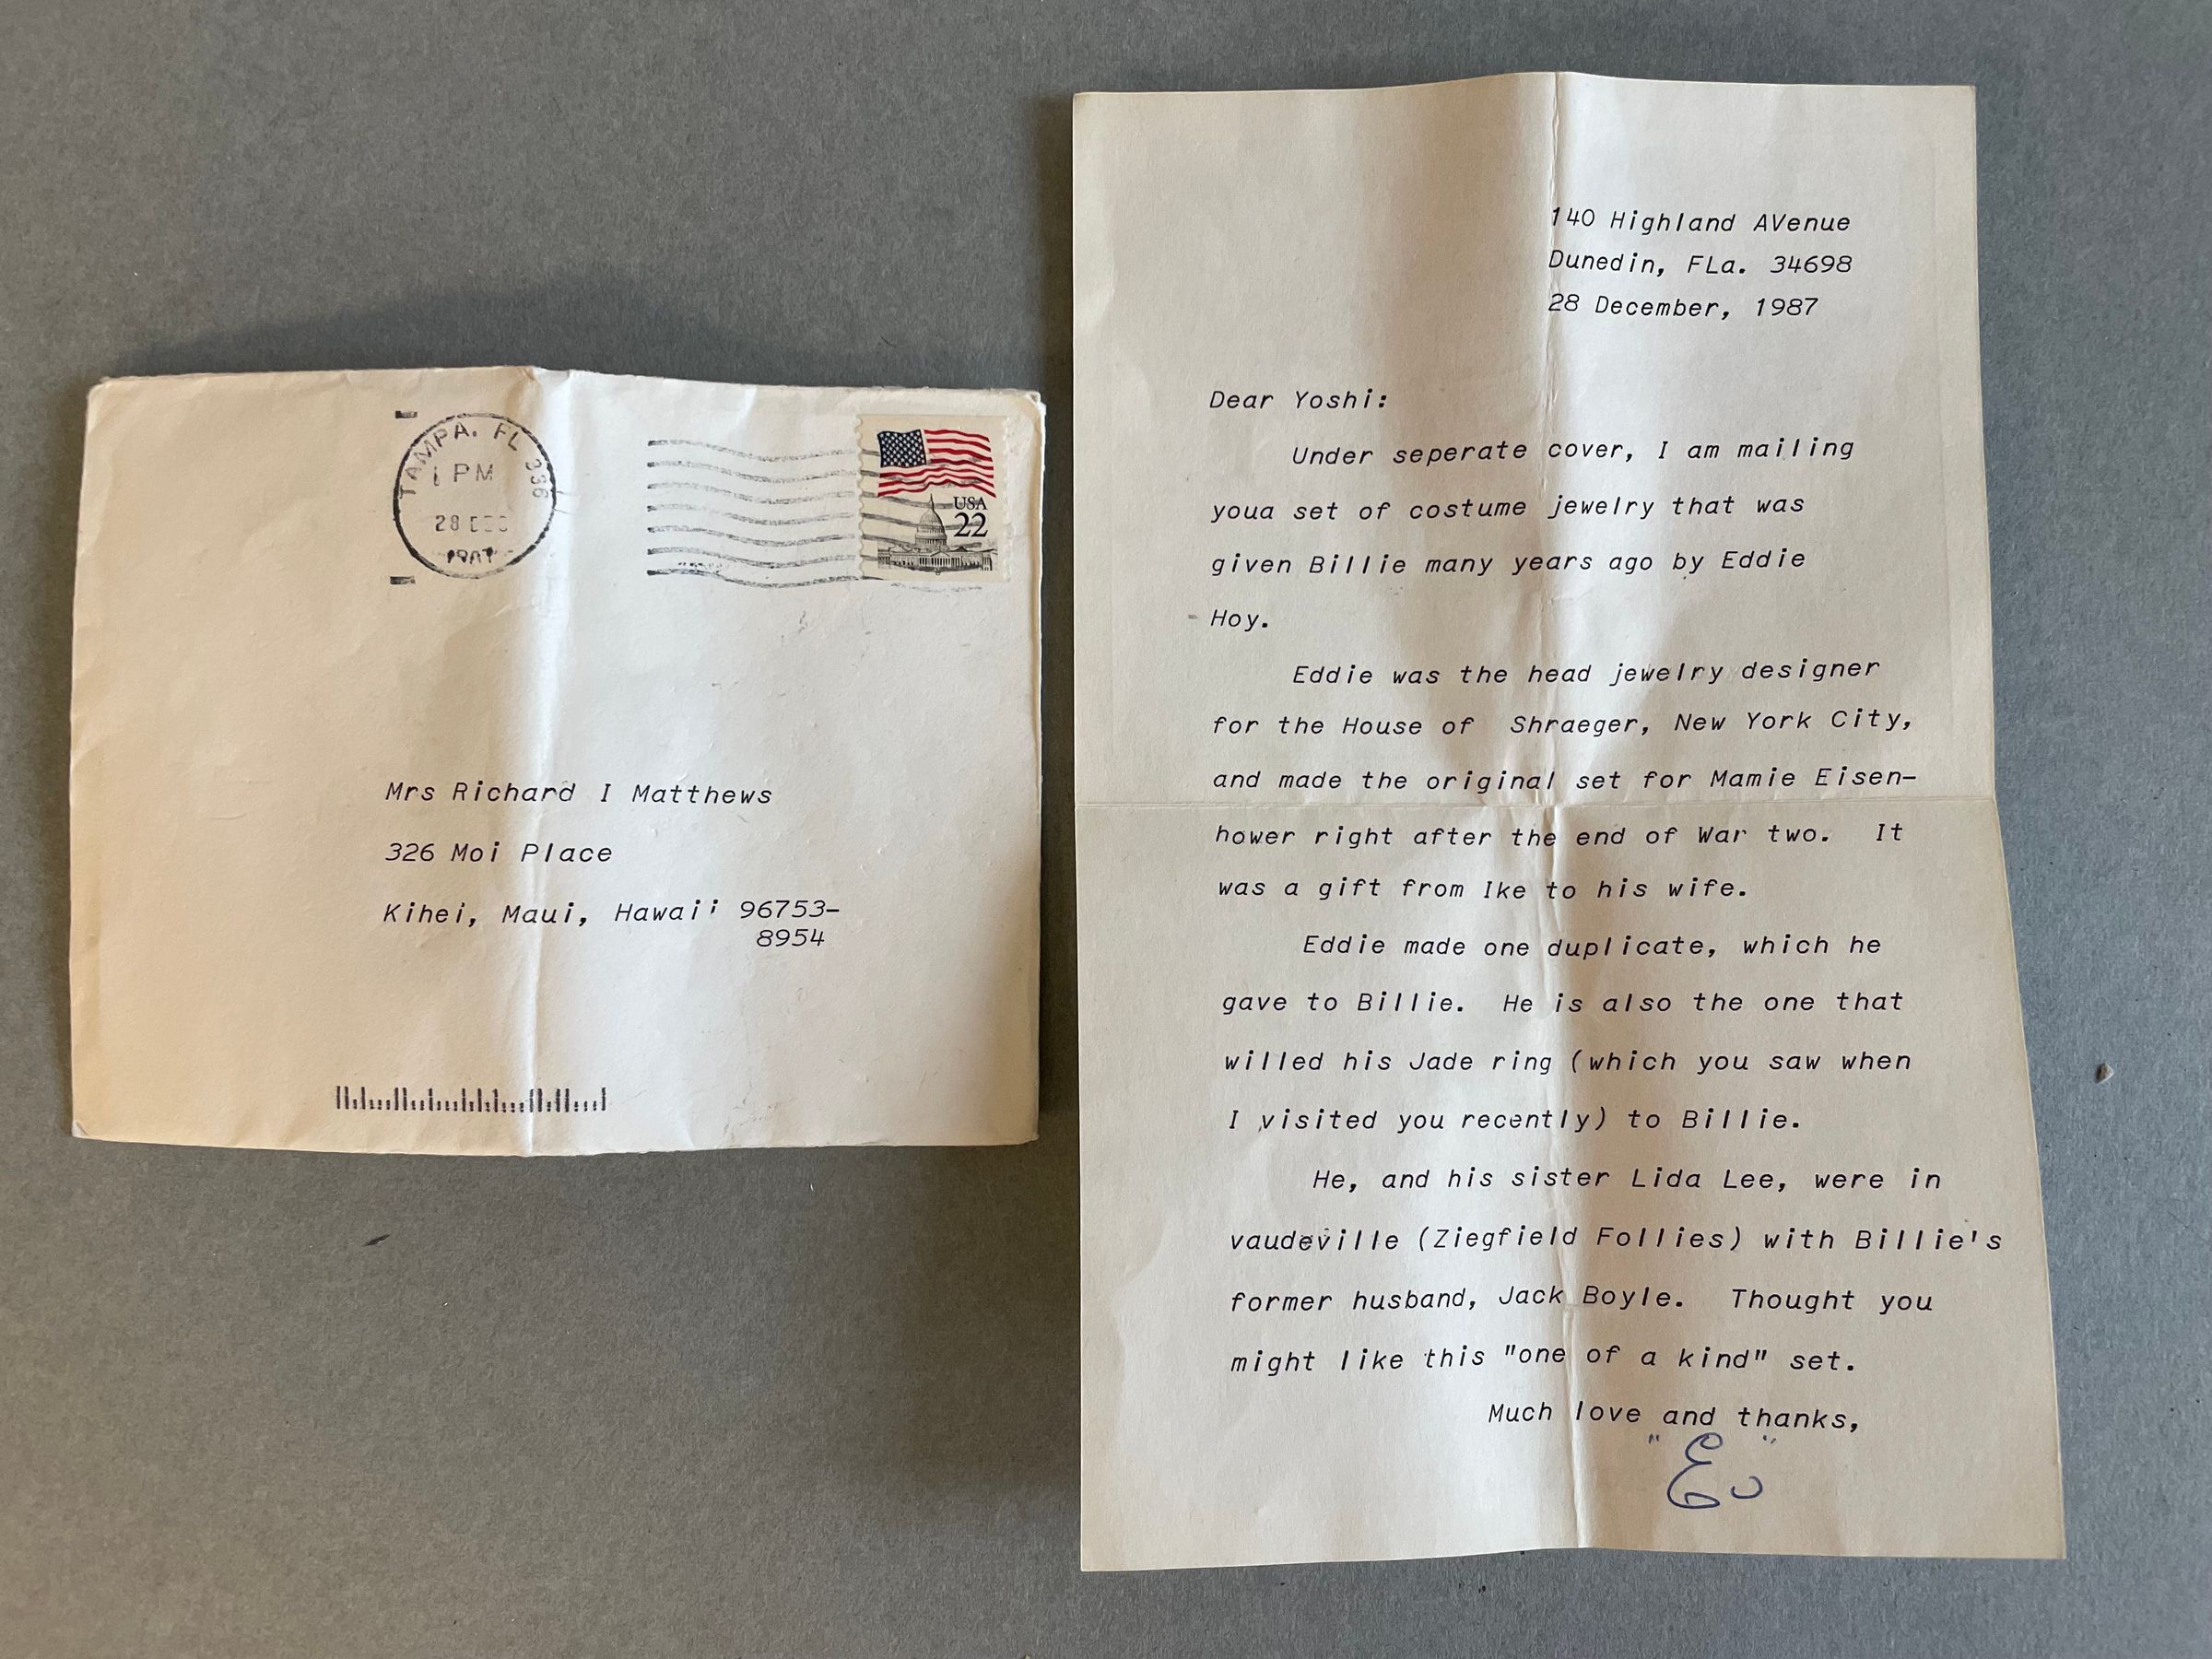 TAMPA, FL 336
1 PM
28 DEC
USA
22
Mrs Richard I Matthews
326 Moi Place
Kihei, Maui, Hawaii 96753-
8954
140 Highland AVenue
Dunedin, FLa. 34698
28 December, 1987
Dear Yoshi:
Under seperate cover, I am mailing
youa set of costume jewelry that was
given Billie many years ago by Eddie
Hoy.
Eddie was the head jewelry designer
for the House of Shraeger, New York City,
and made the original set for Mamie Eisen-
hower right after the end of War two. It
was a gift from Ike to his wife.
Eddie made one duplicate, which he
gave to Billie. He is also the one that
willed his Jade ring (which you saw when
I visited you recently) to Billie.
He, and his sister Lida Lee, were in
vaudeville (Ziegfield Follies) with Billie's
former husband, Jack Boyle. Thought you
might like this "one of a kind" set.
Much love and thanks,